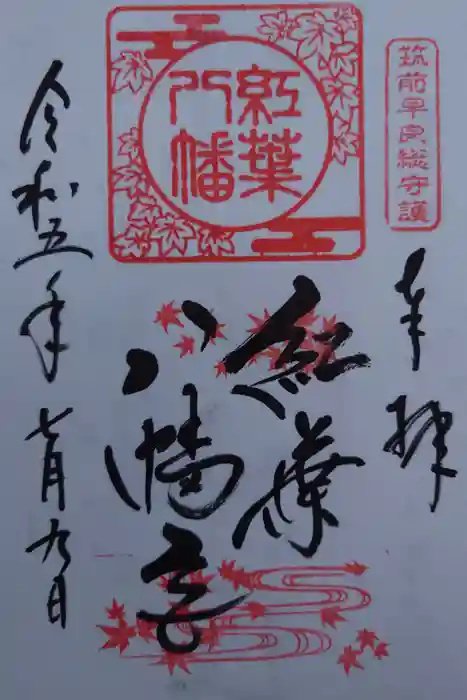 筑前早良総守護
奉拝
紅葉
八幡
紅葉
八幡宮
令和五年七月九日